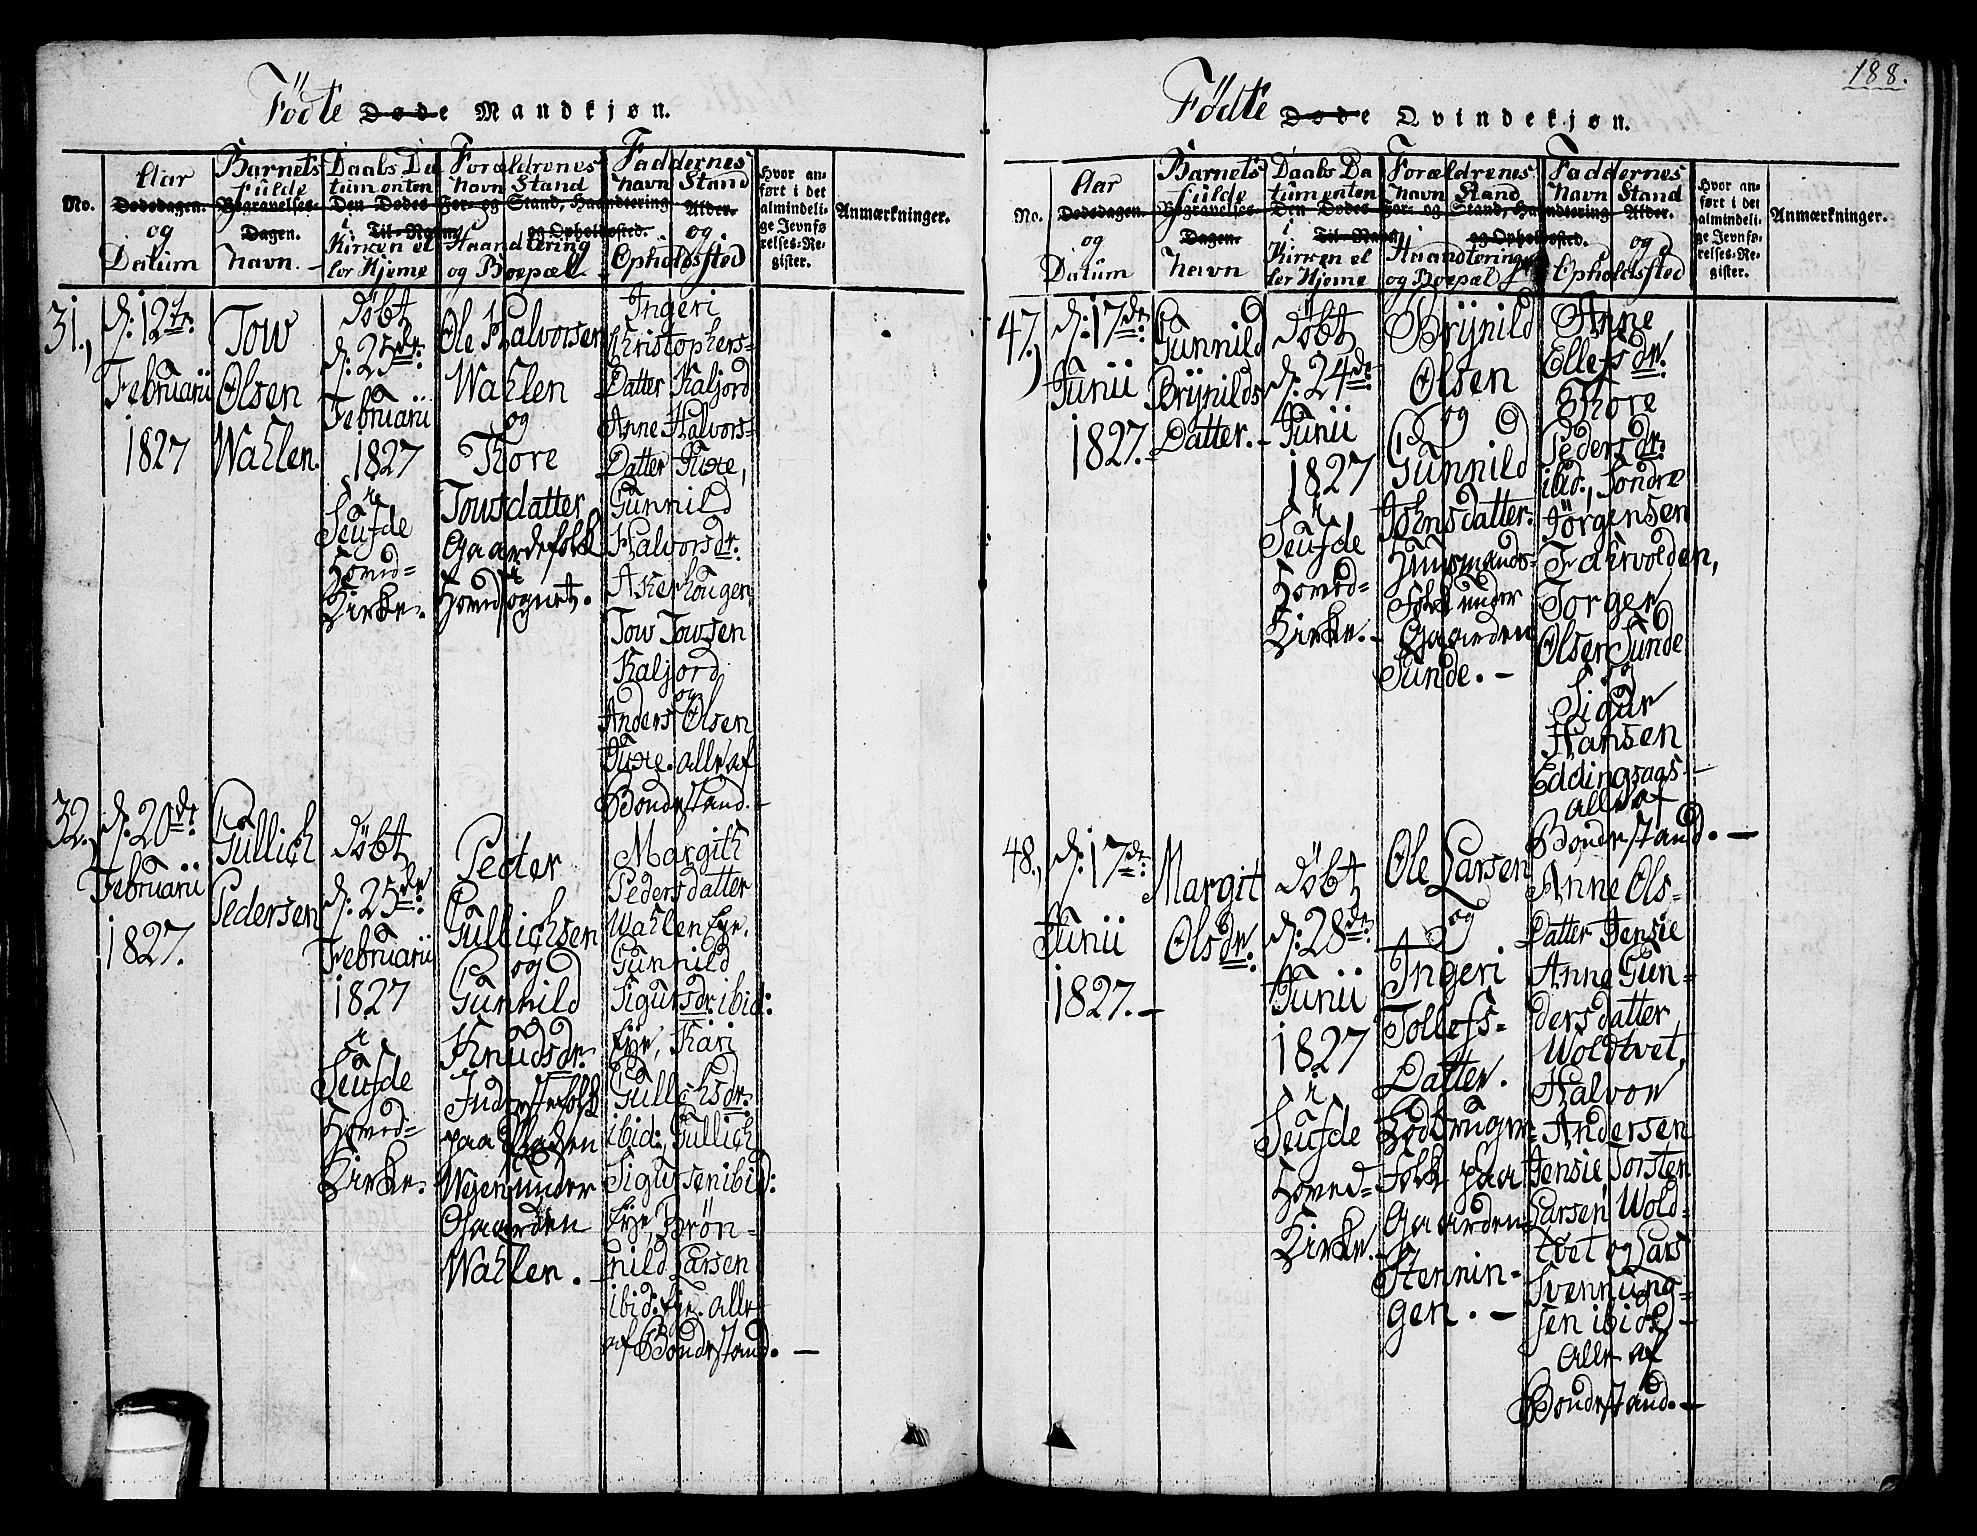 Fødte Døde Mandkjøn.
No.
Aar
Dødsdagen.
og
Datum
Barnets
fulde
Begravelses-
Dagen.
Navn.
Daabs Da
tum enten
Den Dødes
i
Kirken el
ler Hjeme
Forældrenes
Navn Stand
For- og Stand, Haandtering
og Opholdssted.
Haandtering
og Boepæl
Faddernes
Navn Stand
Alder.
og
Opholdssted
Hvor an-
ført i det
almindeli-
ge Jevnfø-
relses-Re-
gister.
Anmærkninger.
31.,
d: 12te
Februarii
1827
Tow
Olsen
Wahlen.
Døbt
d: 25de
Februarii
1827
i
Seufde
Hoved-
Kirke.
Ole Halvorsen
Wahlen
og
Thore
Towsdatter
Gaardefolk
i
Hovedsognet.
Ingeri
Christophers-
Datter Kaljord
Anne Halvors-
Datter Juxe,
Gunnild
Halvorsdr:
Askerhougen
Tow Towsen
Kaljord
og
Anders Olsen
Juxe. alle af
Bondestand.-
32.,
d: 20de
Februarii
1827.
Gullich
Pedersen
Døbt
d: 25de
Februarii
1827
i
Seufde
Hoved-
Kirke.
Peder
Gullichsen
og
Gunnild
Knudsdr.
Inderstefolk
paa Pladsen
Wejen under
Gaarden
Wahlen.
Margith
Pedersdatter
Wahlen Eye.
Gunnild
Sigursdr. ibid:
Eye, Kari
Gullichsdr.
ibid:, Gullich
Sigursen ibid:
Eye, Brøn-
nild Larsen
ibid: Eye. alle
af Bondestand. -
188.
Fødte Døde Qvindekjøn.
No.
Aar
Dødsdagen.
og
Datum
Barnets
fulde
Begravelses-
Dagen.
Navn
Daabs Da
tum enten
Den Dødes
i
Kirken el
ler Hjeme
Forældrenes
Navn Stand
For- og Stand, Haandtering
og Opholdssted.
Haandtering
og Boepæl
Faddernes
Navn Stand
Alder.
og
Opholdssted
Hvor an-
ført i det
almindeli-
ge Jevnfø-
relses-Re-
gister.
Anmærkninger.
47.,
d: 17de
Junii
1827.-
Gunnild
Brynilds
Datter.-
Døbt
d: 24de
Junii
1827
i
Seufde
Hoved-
Kirke.-
Brynild
Olsen
og
Gunnild
Johnsdatter.
Huusmands-
folk under
Gaarden
Sunde. -
Anne
Ellefsdr.
Thore
Pedersdr.
ibid:, Søndre
Jørgensen
Fahrvolden,
Torger
Olsen Sunde
og
Sigur
Hansen
Eddingsaas-
alle af
Bondestand. -
48.,
d: 17de
Junii
1827.-
Margit
Olsdr.
Døbt
d: 28de
Junii
1827
i
Seufde
Hoved-
Kirke.-
Ole Larsen
og
Ingeri
Tollefs-
Datter.
Lodbruger-
folk paa
Gaarden
Stennin-
gen. -
Anne Ols-
Datter Jensie
Anne Gun-
dersdatter
Woldtvet,
Halvor
Andersen
Jensie, Torsten
Larsen Wold-
tvet og Lars
Svennung-
sen ibid:
Alle af
Bondestand.-